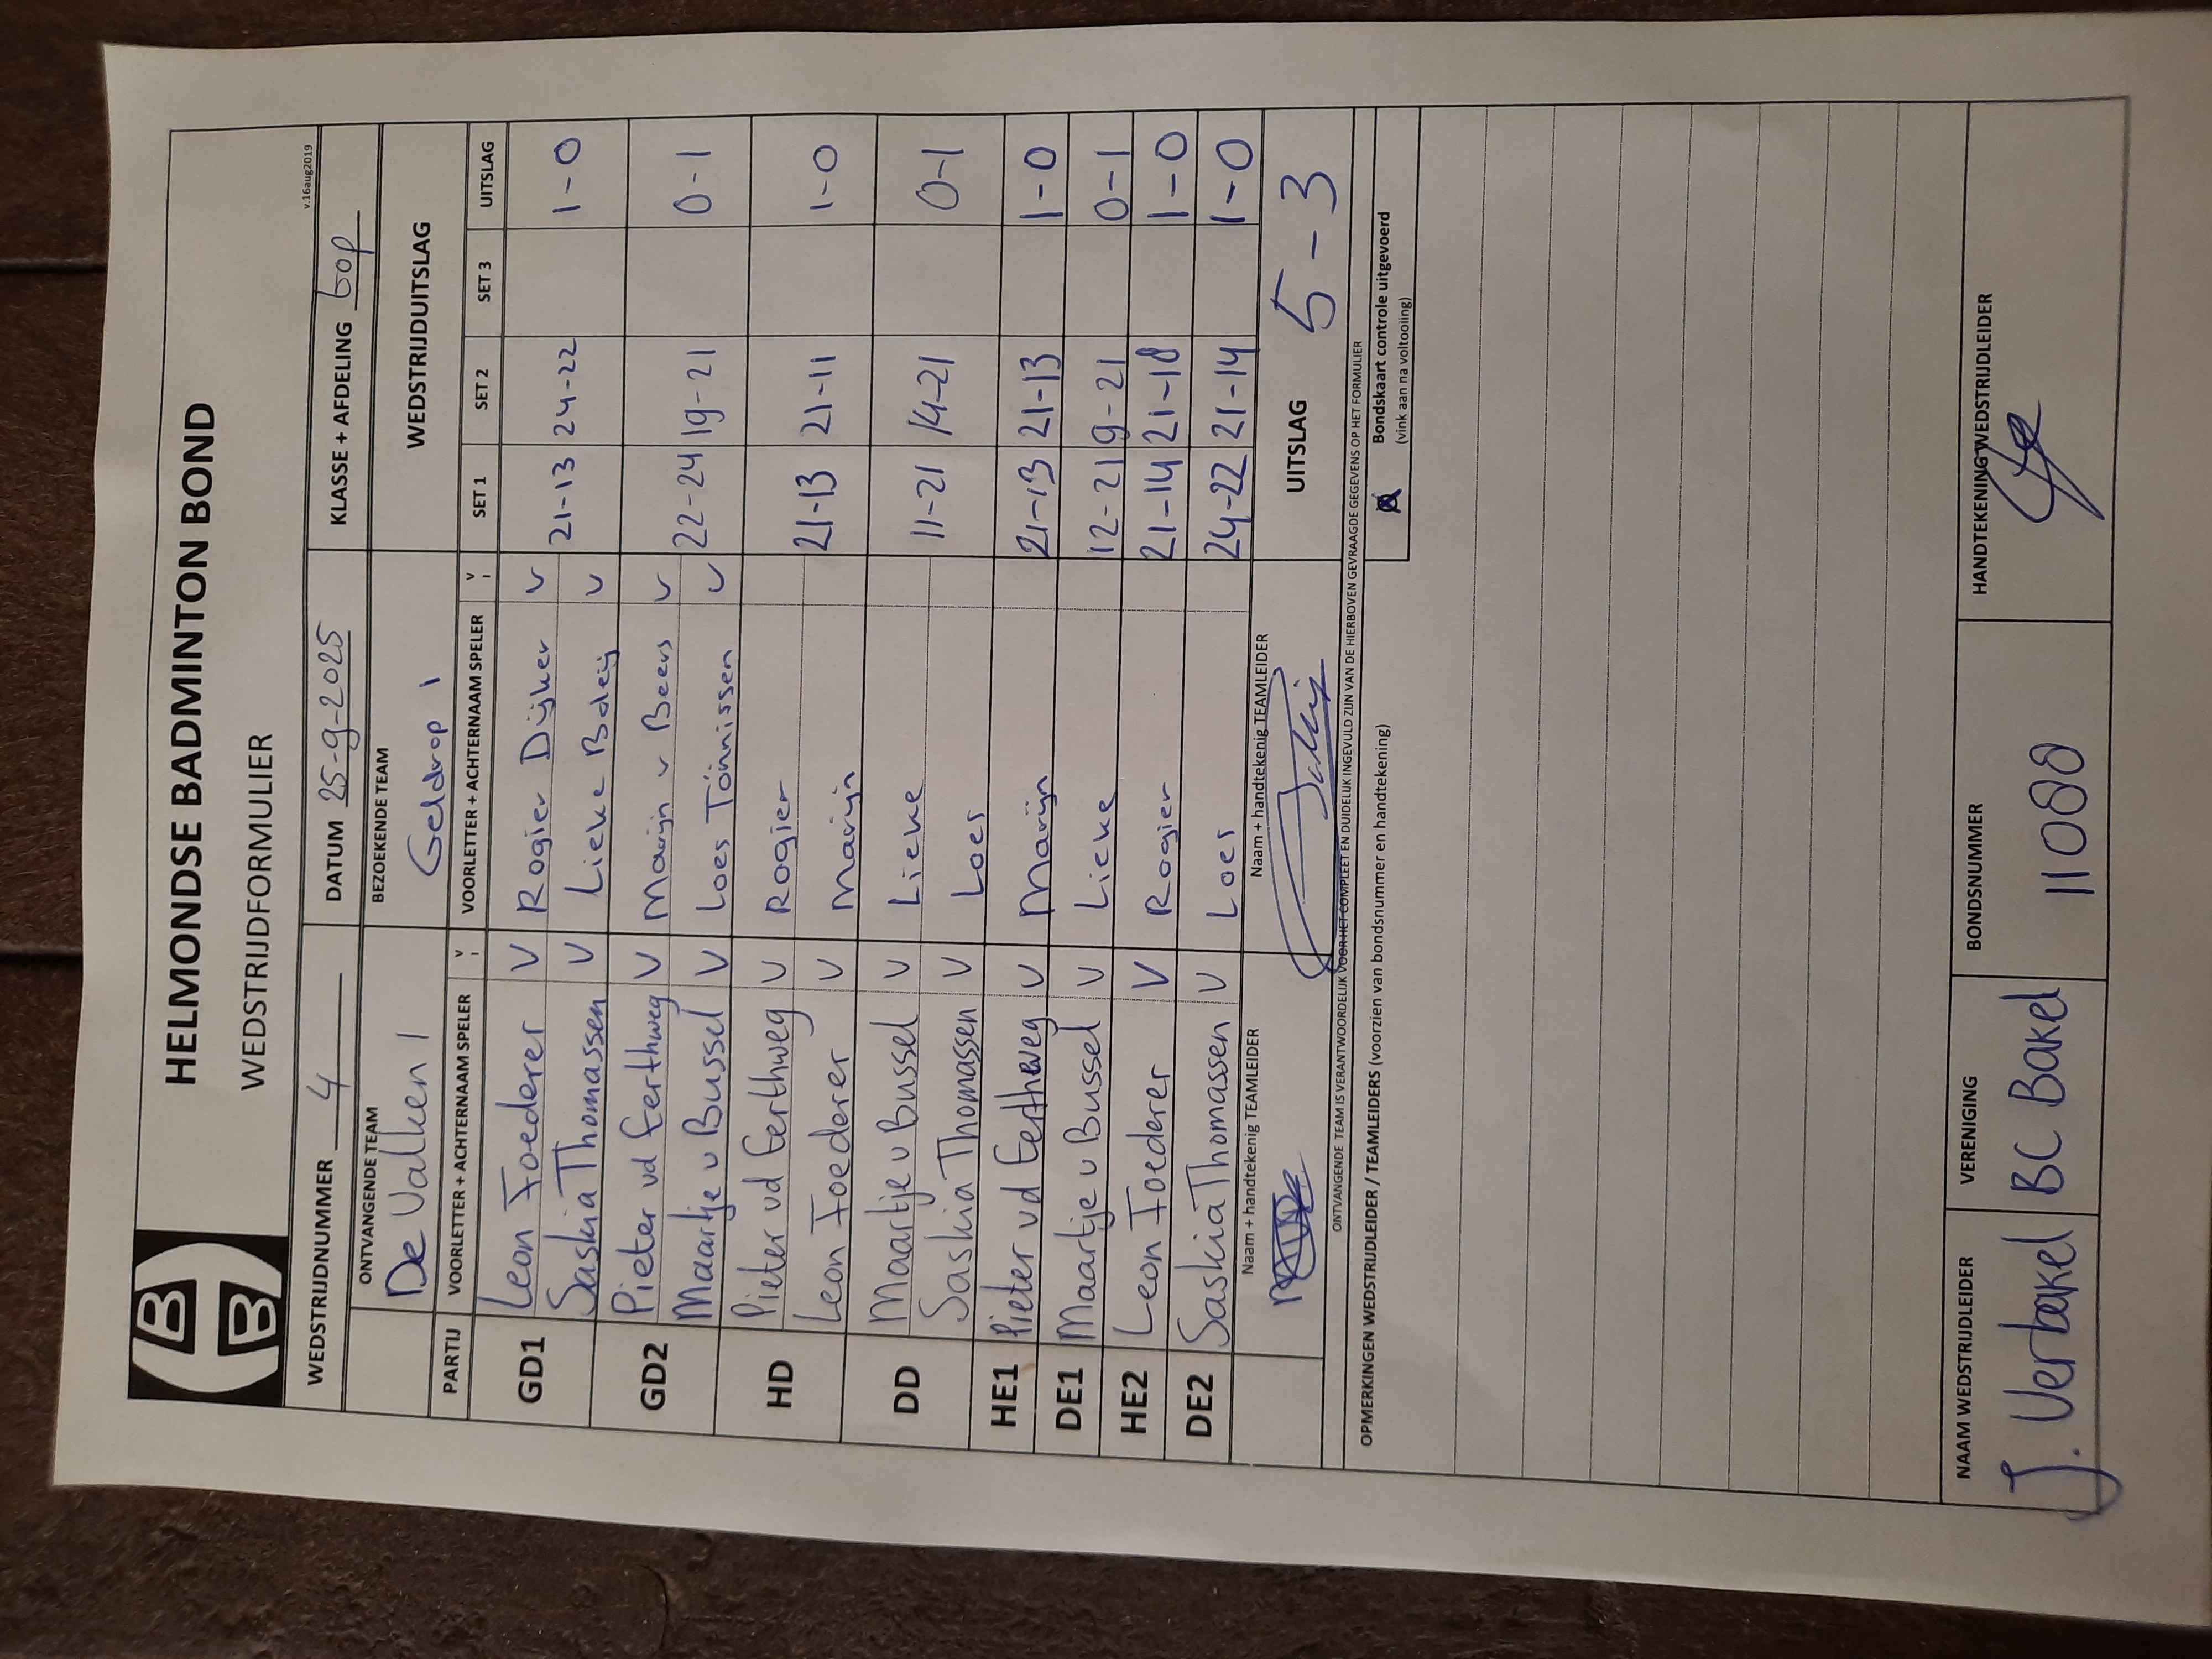 HELMONDSE BADMINTON BOND
WEDSTRIJDFORMULIER
v.16aug2019
WEDSTRIJDNUMMER 4 DATUM 25-9-2025 KLASSE + AFDELING top
ONTVANGENDE TEAM BEZOEKENDE TEAM WEDSTRIJDUITSLAG
De Valken 1 Geldrop 1
PARTIJ VOORLETTER + ACHTERNAAM SPELER V VOORLETTER + ACHTERNAAM SPELER V SET 1 SET 2 SET 3 UITSLAG
GD1 Leon Foederer V Rogier Dijker v 21-13 24-22 1-0
Saskia Thomassen V Lieke Boleij v
GD2 Pieter vd Eerthweg V Marijn v Beers v 22-24 19-21 0-1
Maartje v Bussel V Loes Tönnissen v
HD Pieter vd Eerthweg V Rogier 21-13 21-11 1-0
Leon Foederer V Marijn
DD Maartje v Bussel V Lieke 11-21 14-21 0-1
Saskia Thomassen V Loes
HE1 Pieter vd Eertheweg V Marijn 21-13 21-13 1-0
DE1 Maartje v Bussel V Lieke 12-21 9-21 0-1
HE2 Leon Foederer V Rogier 21-14 21-18 1-0
DE2 Saskia Thomassen V Loes 24-22 21-14 1-0
Naam + handtekenig TEAMLEIDER Naam + handtekenig TEAMLEIDER UITSLAG 5-3
ONTVANGENDE TEAM IS VERANTWOORDELIJK VOOR HET COMPLEET EN DUIDELIJK INGEVULD ZIJN VAN DE HIERBOVEN GEVRAAGDE GEGEVENS OP HET FORMULIER
OPMERKINGEN WEDSTRIJDLEIDER / TEAMLEIDERS (voorzien van bondsnummer en handtekening)
Bondskaart controle uitgevoerd
(vink aan na voltooiing)
NAAM WEDSTRIJDLEIDER VERENIGING BONDSNUMMER HANDTEKENING WEDSTRIJDLEIDER
J. Verbakel BC Bakel 11088